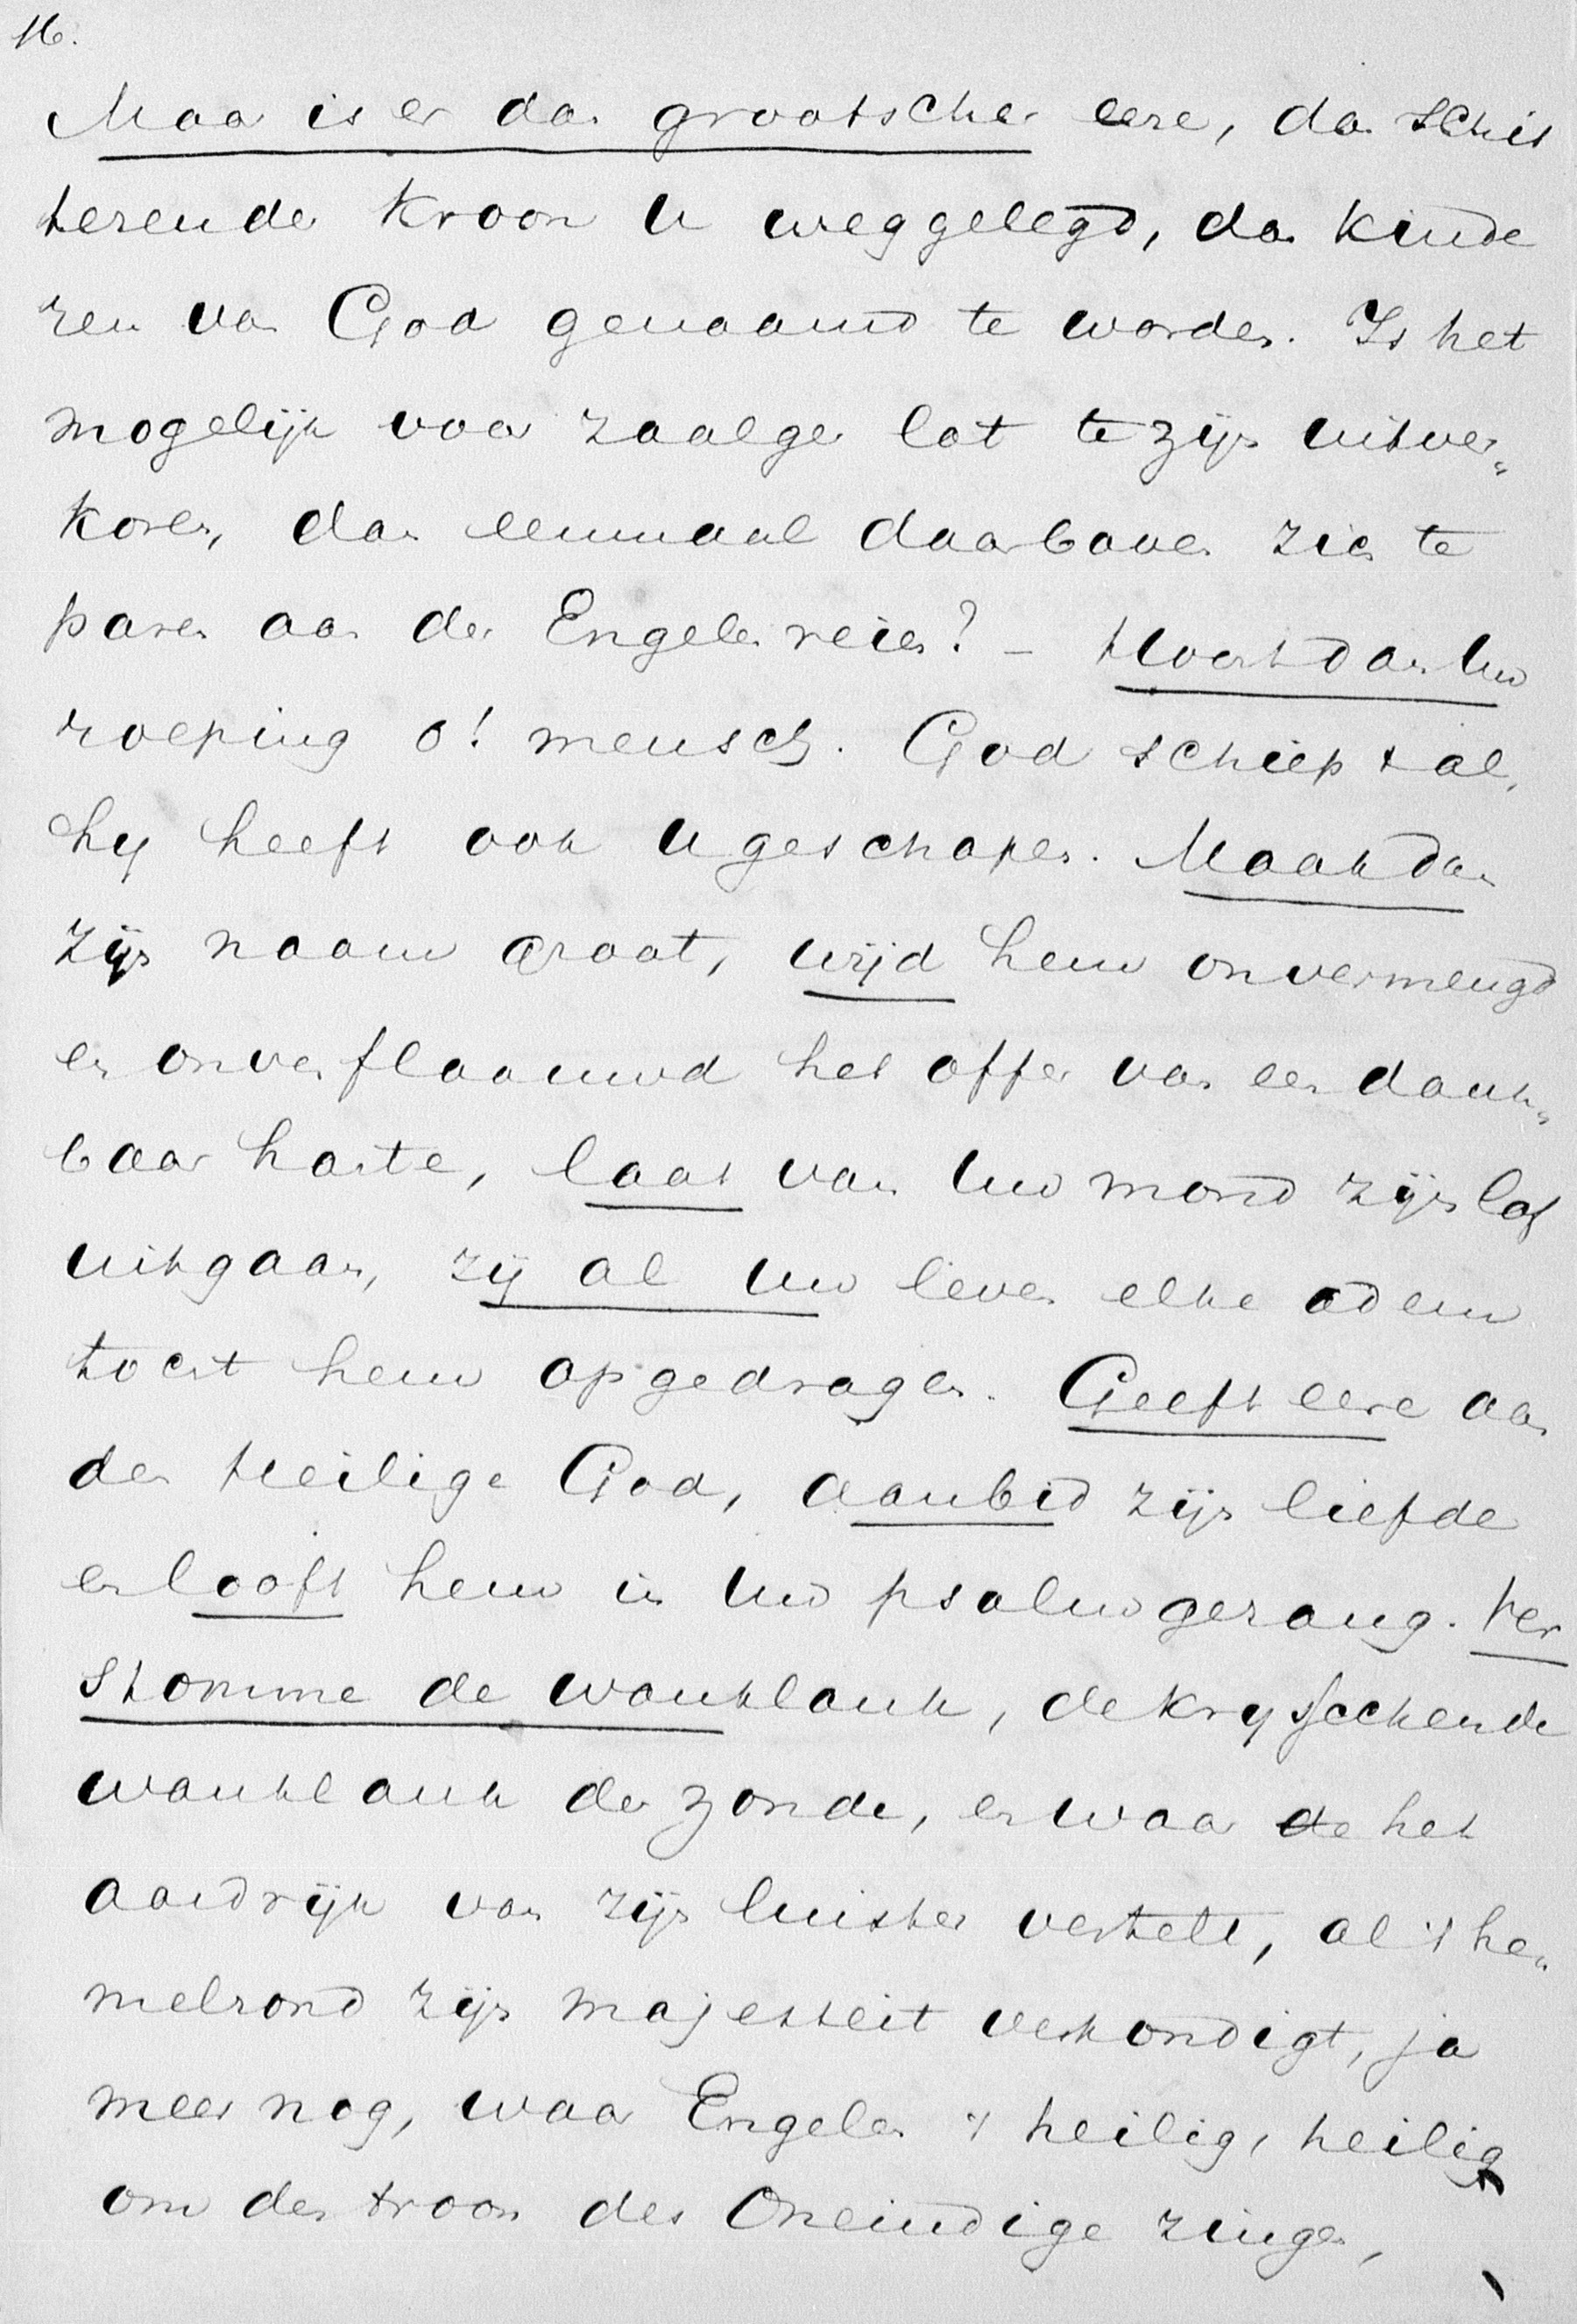 16.
Maar is er dan grootscher eere, dan schit
terender kroon U weggelegd, dan kinde
ren van God genaamd te worden. Is het
mogelijk voor zaalger lot te zijn uitver„
koren, dan eenmaal daarboven zich te
paren aan der Engelen reien? – Hoort dan Uw
roeping o! mensch. God schiep 't al,
hy heeft ook U geschapen. Maak dan
zijn naam groot, wijd hem onvermengd
en onverflaauwd het offer van een dank„
baar harte, laat van Uw mond zijn lof
uitgaan, zij al Uw leven elke adem
tocht hem opgedragen. Geeft eere aan
den Heilige God, aanbid zijn liefde
en looft hem in Uw psalmgezang. Ver
stomme de wanklank, de krysschende
wanklank der zonde, en waar de het
aardrijk van zijn luister vertelt, al 't he„
melrond zijn majesteit verkondigt, ja
meer nog, waar Engelen 't heilig, heilig
om den troon des Oneindige zingen,